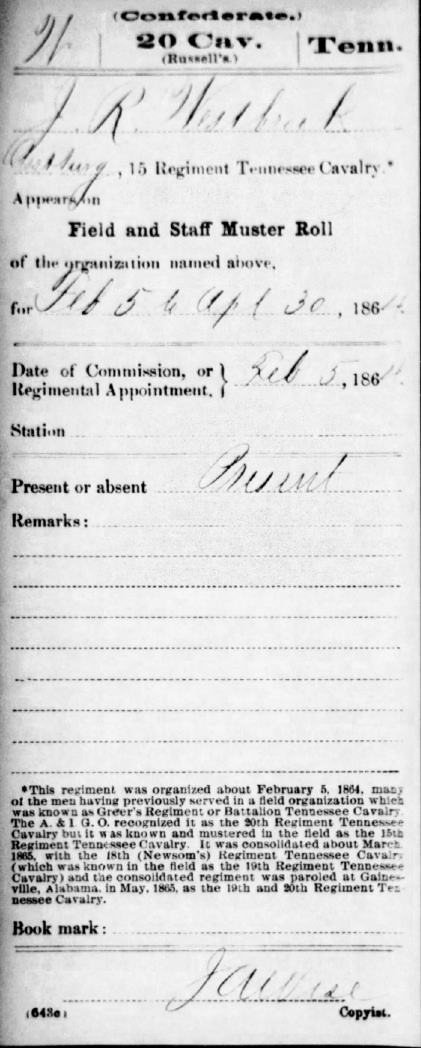 (Confederate.)
W | 20 Cav. | Tenn.
(Russell's.)
J. R. Westbrook
, 15 Regiment Tennessee Cavalry.*
Appears on
Field and Staff Muster Roll
of the organization named above,
for Feb 5 to Apl 30, 1864.
Date of Commission, or } Feb 5, 1864.
Regimental Appointment,
Station
Present or absent Present
Remarks:
*This regiment was organized about February 5, 1864, many
of the men having previously served in a field organization which
was known as Greer's Regiment or Battalion Tennessee Cavalry.
The A. & I. G. O. recognized it as the 20th Regiment Tennessee
Cavalry but it was known and mustered in the field as the 15th
Regiment Tennessee Cavalry. It was consolidated about March
1865, with the 18th (Newsom's) Regiment Tennessee Cavalry
(which was known in the field as the 19th Regiment Tennessee
Cavalry) and the consolidated regiment was paroled at Gaines-
ville, Alabama, in May, 1865, as the 19th and 20th Regiment Ten-
nessee Cavalry.
Book mark:
(643e) Copyist.